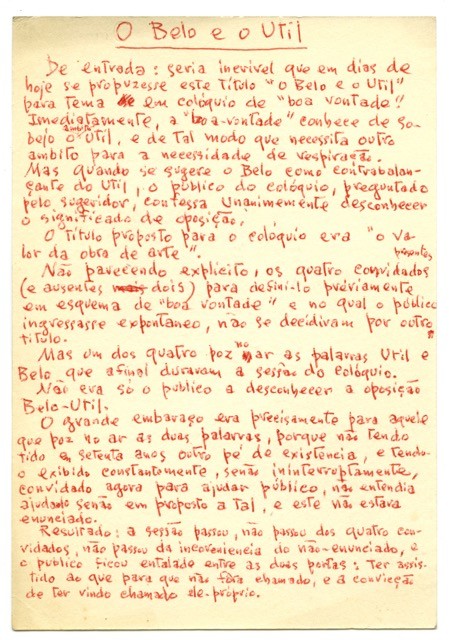 O Belo e o Util
De entrada: seria incrivel que em dias de
hoje se propuzesse este título "O Belo e o Util"
para tema em colóquio de "boa vontade"!
Imediatamente, a "boa-vontade" conhece de so-
bejo o âmbito Util, e de tal modo que necessita outro
ambito para a necessidade de respiração.
Mas quando se sugere o Belo como contrabalan-
çante do Util, o público do colóquio, preguntado
pelo sugeridor, confessa unanimemente desconhecer
o significado de oposição.
O título proposto para o colóquio era "o va-
lor da obra de arte".
Não parecendo explícito, os quatro convidados presentes
(e ausentes dois) para defini-lo préviamente
em esquema de "boa vontade" e no qual o público
ingressasse expontaneo, não se decidiram por outro
título.
Mas um dos quatro poz no ar as palavras Util e
Belo que afinal duraram a sessão do colóquio.
Não era só o público a desconhecer a oposição
Belo-Util.
O grande embaraço era precisamente para aquele
que poz no ar as duas palavras, porque não tendo
tido em setenta anos outro pé de existência, e tendo-
o exibido constantemente, senão ininterruptamente,
convidado agora para ajudar público, não entendia
ajudar senão em proposto a tal, e este não estava
enunciado.
Resultado: a sessão passou, não passou dos quatro con-
vidados, não passou da incoveniencia do não-enunciado, e
o público ficou entalado entre as duas portas: ter assis-
tido ao que para que não fôra chamado, e a convicção
de ter vindo chamado ele-próprio.